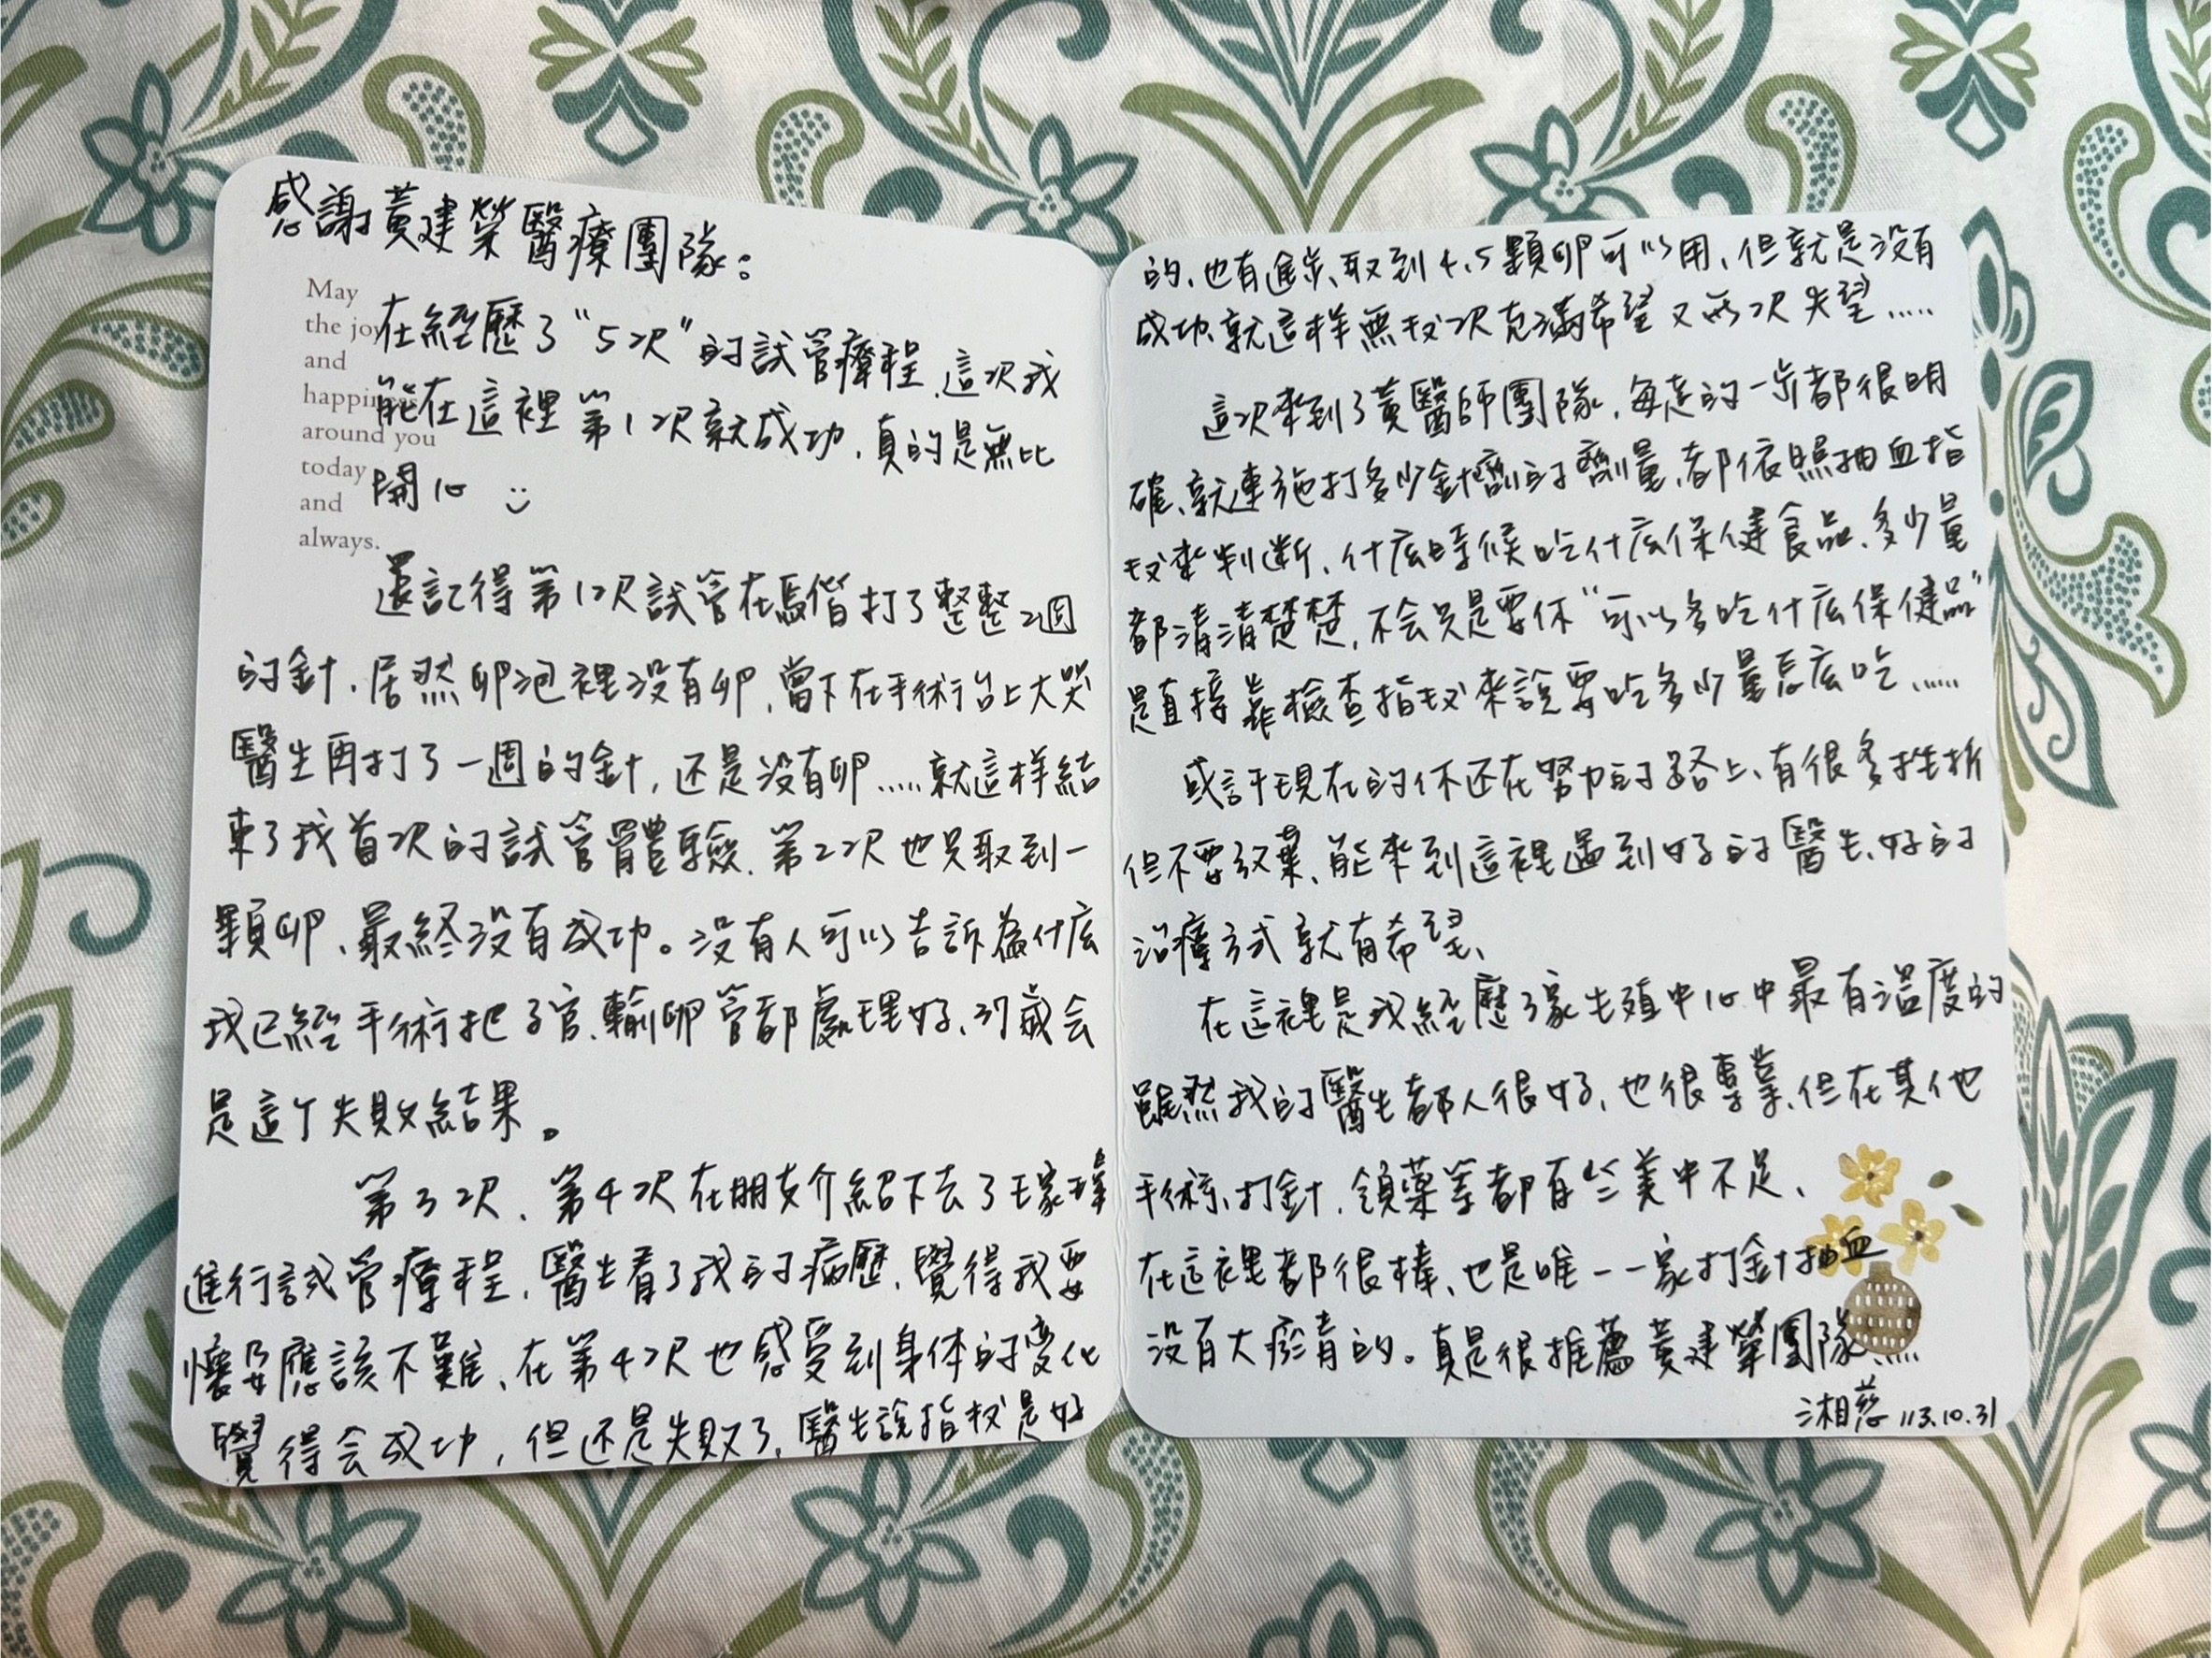 感謝黃建榮醫療團隊：
May
the joy
and
happiness
around you
today
and
always.
在經歷了“5次”的試管療程、這次我
能在這裡第1次就成功，真的是無比
開心
還記得第1次試管在馬偕打了整整2週
的針，居然卵泡裡沒有卵，當下在手術台上大哭
醫生再打了一週的針，还是沒有卵……就這样結
束了我首次的試管體驗、第2次也只取到一
顆卵、最終沒有成功。沒有人可以告訴為什庅
我已經手術把子宮、輸卵管都處理好、37歲会
是這个失敗結果。
第3次、第4次在朋友介紹下去了
進行試管療程，醫生看了我的病歷，覺得我要
懷孕應該不難、在第4次也感受到身体的变化
覺得会成功，但还是失敗了，醫生說指数是好
的、也有進步、取到4、5顆卵可以用、但就是沒有
成功、就這样無数次充滿希望又 次失望……
這次來到了黃醫師團隊，每走的一步都很明
確、就連施打多少針劑的劑量、都依照抽血指
数來判断、什庅時候吃什庅保健食品、多少量
都清清楚楚，不会只是要你“可以多吃什庅保健品”
是直接靠檢查指数來說要吃多少量怎庅吃……
或許現在的你还在努力的路上、有很多挫折
但不要放棄、能來到這裡遇到好的醫生、好的
治療方式就有希望、
在這裡是我經歷3家生殖中心中最有溫度的
雖然我的醫生都人很好、也很專業、但在其他
手術、打針、領藥等都有些美中不足、
在這裡都很棒、也是唯一一家打針抽血
沒有大瘀青的。真是很推薦黃建榮團隊……
湘慈 113.10.31